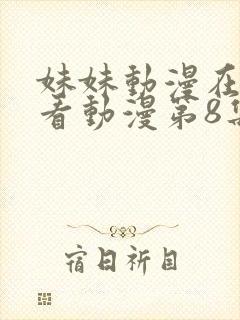 妹妹動漫在
看動漫第8集
宿日祈目